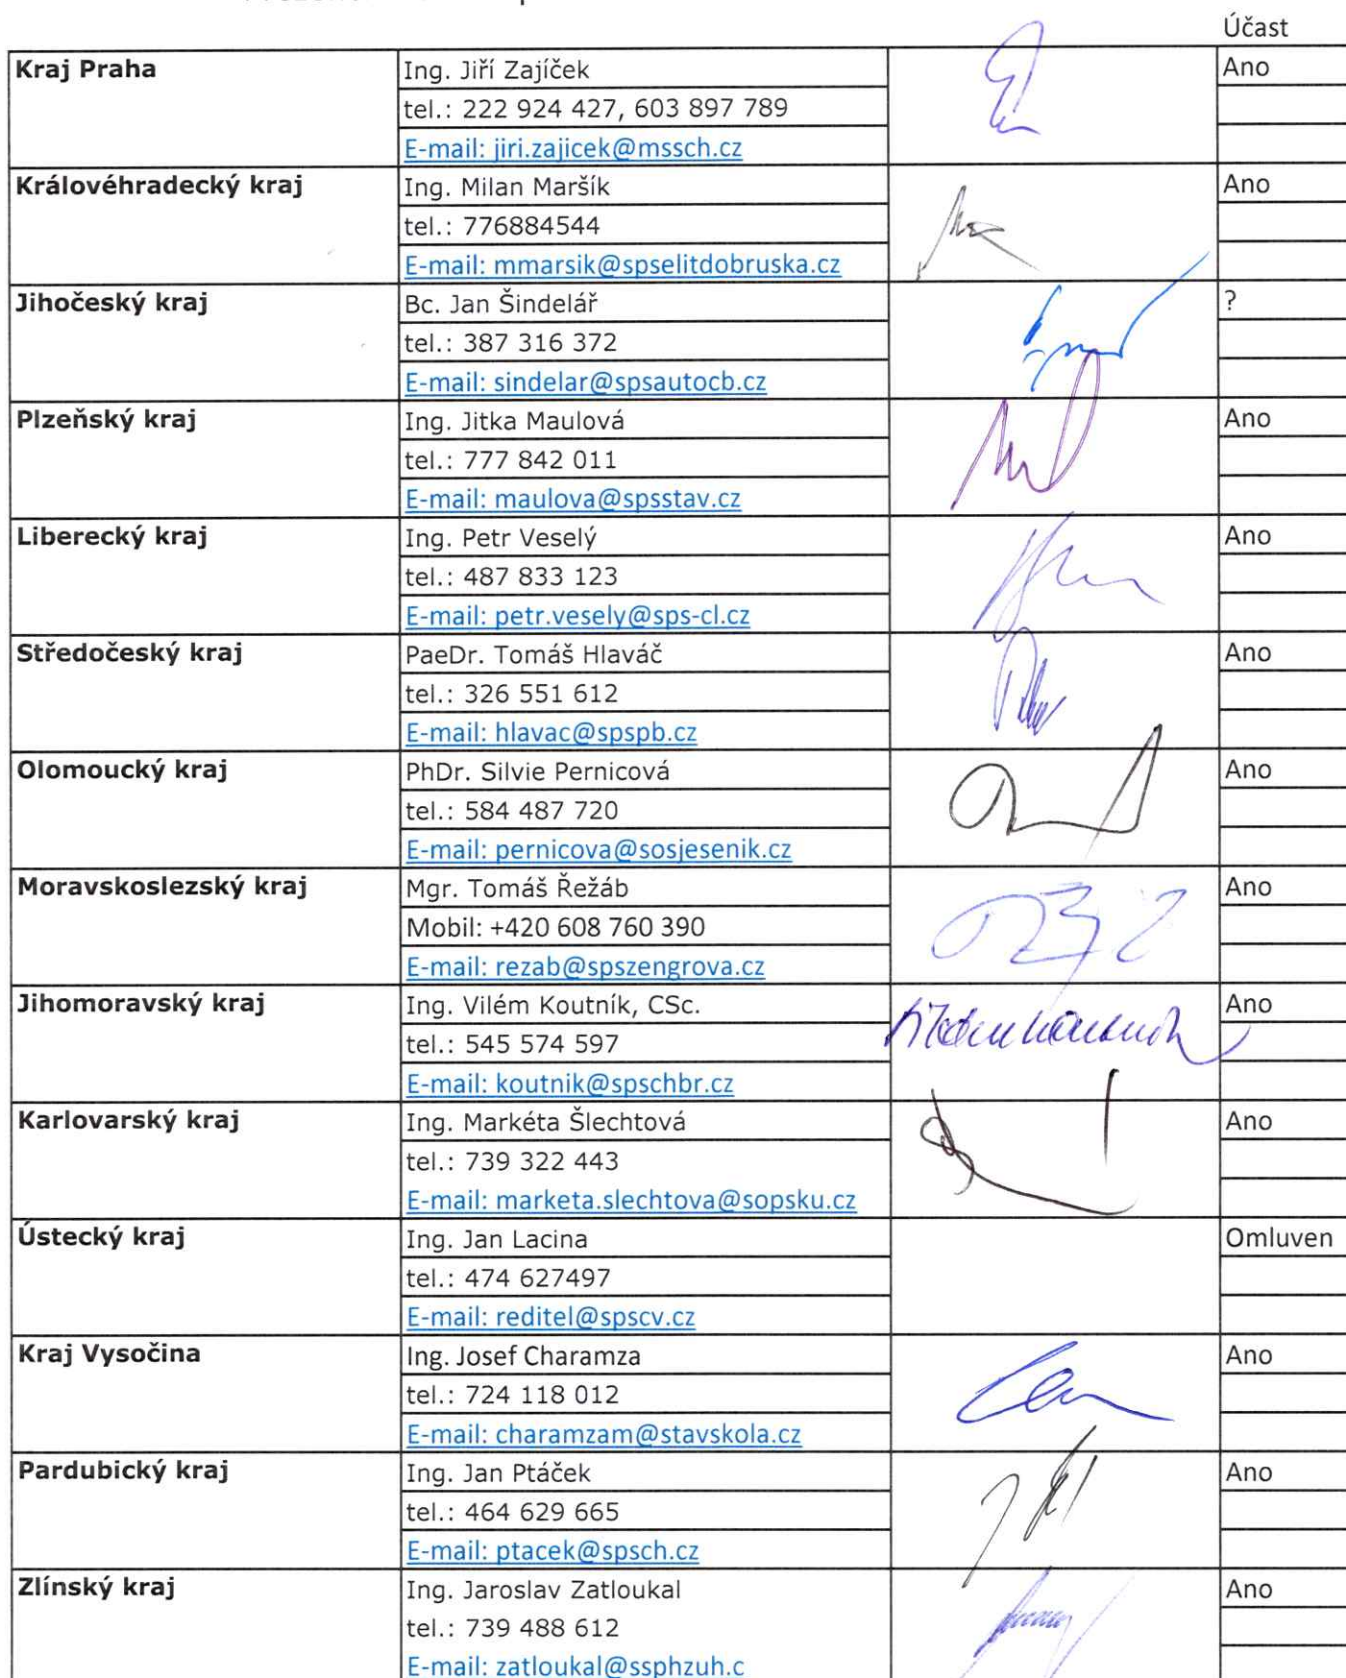 Účast
Kraj Praha Ing. Jiří Zajíček Ano
tel.: 222 924 427, 603 897 789
E-mail: jiri.zajicek@mssch.cz
Královéhradecký kraj Ing. Milan Maršík Ano
tel.: 776884544
E-mail: mmarsik@spselitdobruska.cz
Jihočeský kraj Bc. Jan Šindelář ?
tel.: 387 316 372
E-mail: sindelar@spsautocb.cz
Plzeňský kraj Ing. Jitka Maulová Ano
tel.: 777 842 011
E-mail: maulova@spsstav.cz
Liberecký kraj Ing. Petr Veselý Ano
tel.: 487 833 123
E-mail: petr.vesely@sps-cl.cz
Středočeský kraj PaeDr. Tomáš Hlaváč Ano
tel.: 326 551 612
E-mail: hlavac@spspb.cz
Olomoucký kraj PhDr. Silvie Pernicová Ano
tel.: 584 487 720
E-mail: pernicova@sosjesenik.cz
Moravskoslezský kraj Mgr. Tomáš Řežáb Ano
Mobil: +420 608 760 390
E-mail: rezab@spszengrova.cz
Jihomoravský kraj Ing. Vilém Koutník, CSc. Ano
tel.: 545 574 597
E-mail: koutnik@spschbr.cz
Karlovarský kraj Ing. Markéta Šlechtová Ano
tel.: 739 322 443
E-mail: marketa.slechtova@sopsku.cz
Ústecký kraj Ing. Jan Lacina Omluven
tel.: 474 627497
E-mail: reditel@spscv.cz
Kraj Vysočina Ing. Josef Charamza Ano
tel.: 724 118 012
E-mail: charamzam@stavskola.cz
Pardubický kraj Ing. Jan Ptáček Ano
tel.: 464 629 665
E-mail: ptacek@spsch.cz
Zlínský kraj Ing. Jaroslav Zatloukal Ano
tel.: 739 488 612
E-mail: zatloukal@ssphzuh.c